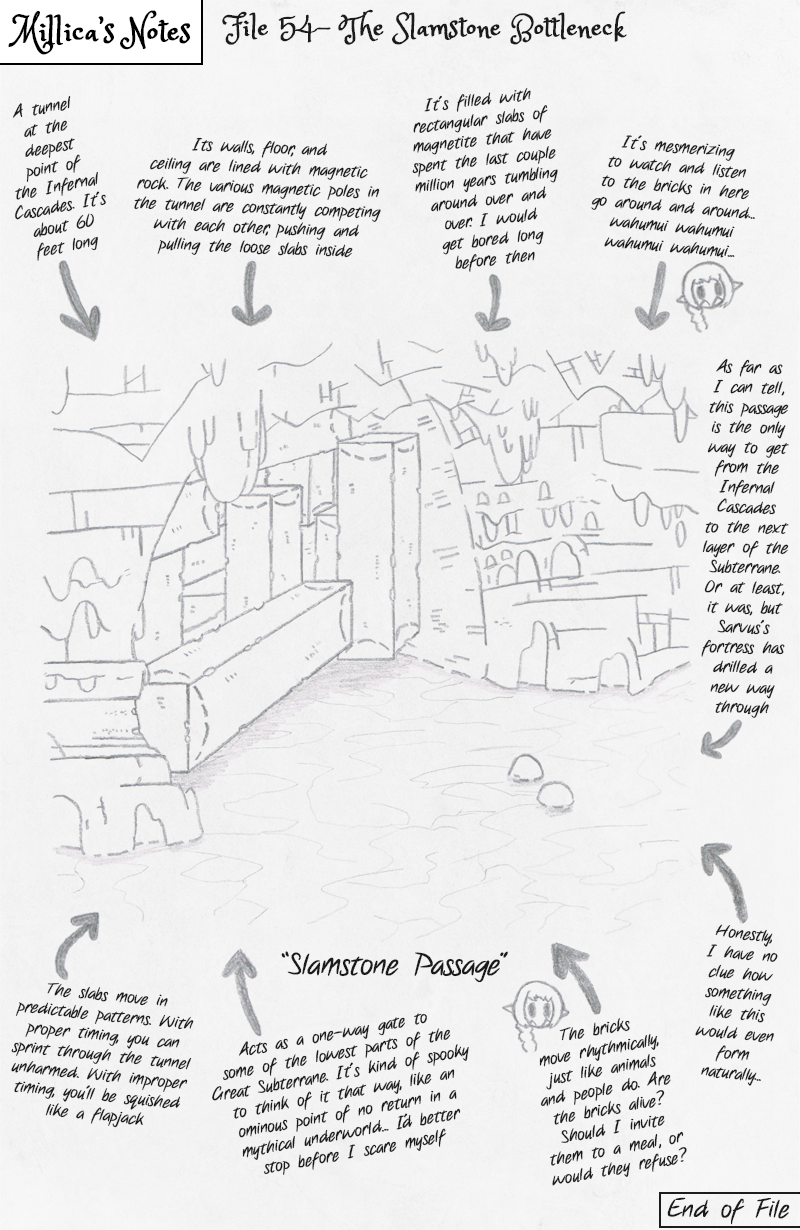 Millica's Notes
File 54– The Slamstone Bottleneck
A tunnel
at the
deepest
point of
the Infernal
Cascades. It's
about 60
feet long
Its walls, floor, and
ceiling are lined with magnetic
rock. The various magnetic poles in
the tunnel are constantly competing
with each other, pushing and
pulling the loose slabs inside
It's filled with
rectangular slabs of
magnetite that have
spent the last couple
million years tumbling
around over and
over. I would
get bored long
before then
It's mesmerizing
to watch and listen
to the bricks in here
go around and around...
wahumui wahumui
wahumui wahumui...
As far as
I can tell,
this passage
is the only
way to get
from the
Infernal
Cascades
to the next
layer of the
Subterrane.
Or at least,
it was, but
Sarvus's
fortress has
drilled a
new way
through
Honestly,
I have no
clue how
something
like this
would even
form
naturally...
"Slamstone Passage"
The slabs move in
predictable patterns. With
proper timing, you can
sprint through the tunnel
unharmed. With improper
timing, you'll be squished
like a flapjack
Acts as a one-way gate to
some of the lowest parts of the
Great Subterrane. It's kind of spooky
to think of it that way, like an
ominous point of no return in a
mythical underworld... I'd better
stop before I scare myself
The bricks
move rhythmically,
just like animals
and people do. Are
the bricks alive?
Should I invite
them to a meal, or
would they refuse?
End of File